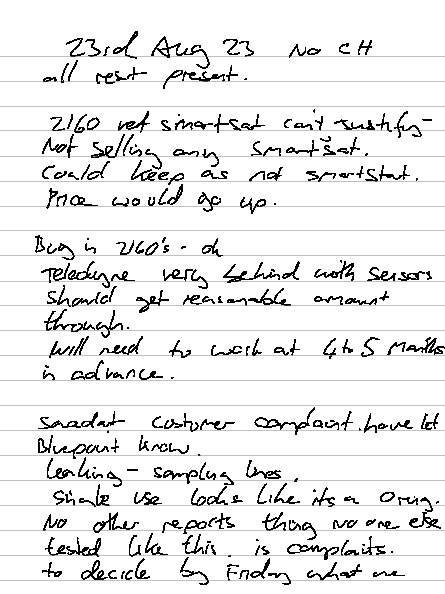 23rd Aug 23 No CH
all rest present.
2160 ref smartsat can't justify -
Not selling any smartsat.
Could keep as not smartstat.
Price would go up.
Bug in 2160's - ok
Teledyne very behind with sensors
Should get reasonable amount
through.
Will need to work at 4 to 5 Months
in advance.
customer complaint. have let
Bluepoint know.
leaking - sampling lines.
Single use looks like its a Oring.
No other reports thing no one else
tested like this. is complaits.
to decide by Friday what we